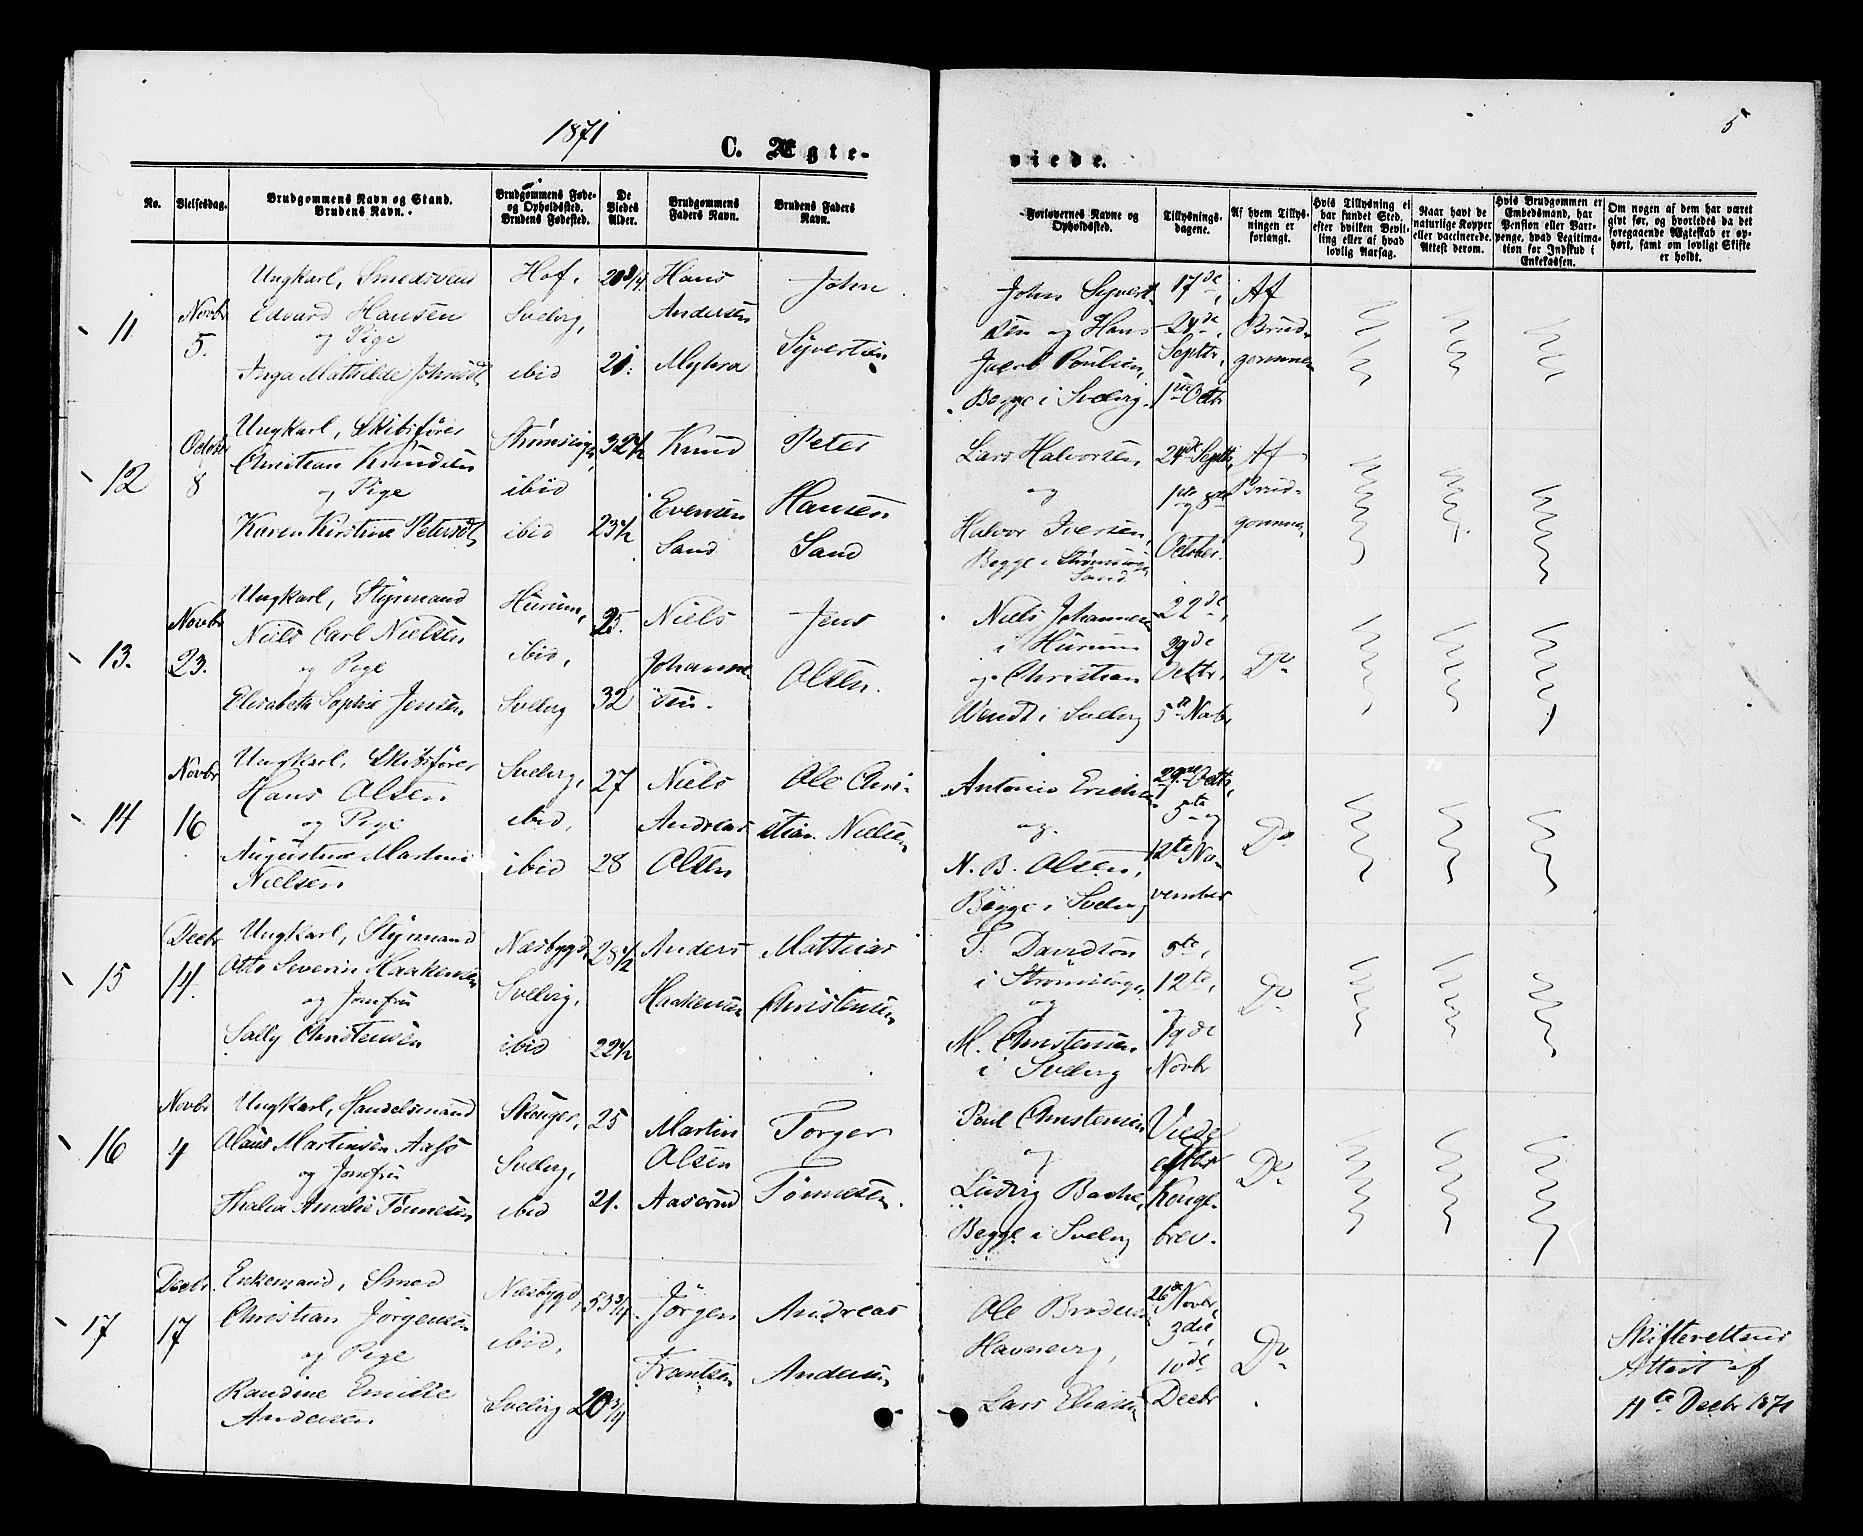 1871
C. Ægte-
viede.
5
No.
Vielsesdag.
Brudgommens Navn og Stand.
Brudens Navn.
Brudgommens Føde-
og Opholdssted.
Brudens Fødested.
De
Viedes
Alder.
Brudgommens
Faders Navn.
Brudens Faders
Navn.
Forlovernes Navne og
Opholdssted.
Tillysnings-
dagene.
Af hvem Tillys-
ningen er
forlangt.
Hvis Tillysning ei
har fundet Sted,
efter hvilken Bevil-
ling eller af hvad
lovlig Aarsag.
Naar havt de
naturlige Kopper
eller vaccinerede.
Attest derom.
Hvis Brudgommen er
Embedsmand, har
Pension eller Vart-
penge, hvad Legitima-
tion for Indskud i
Enkekassen.
Om nogen af dem har været
gift før, og hvorledes da det
foregaaende Ægteskab er op-
hørt, samt om lovligt Skifte
er holdt.
11
Novbr
5.
Ungkarl, Smedsvend
Edvard Hansen
og Pige
Inga Mathilde Johnsdt
Hof,
Svelvig,
ibid
20 3/4.
21.
Hans
Andersen
John
Syvertsen
John Syvert-
sen og Hans
Jacob Poulsen,
Begge i Svelvig.
17de,
24de
Septbr,
1ste Octbr
Af
Brud-
gommen
12
October
8
Ungkarl, Skibsfører
Christian Knudsen
og Pige
Karen Kirstine Petersdt
ibid
ibid
32 1/2
23 1/2
Knud
Evensen
Sand
Peter
Hansen
Sand
Lars Halvorsen
og
Halvor Iversen,
Begge i Strømsø
Sand
24de Septbr,
1ste og 8de
October.
Af
Brud-
gommen
13.
Novbr
23.
Ungkarl, Styrmand
Niels Carl Nielsen
og Pige
Elisabeth Sophie Jensen
Hurum,
ibid,
Svelvig
25.
32
Niels
Johanne
sen.
Jens
Olsen.
Niels Johannesen
i Hurum
og Christian
Wendt i Svelvig
22de,
29de
Octbr,
5te Novbr
Do
14
Novbr
16
Ungkarl, Skibsfører
Hans Olsen
og Pige
Augustine Martine
Nielsen
Svelvig,
ibid,
ibid
27
28
Niels
Andreas
Olsen
Ole Chri-
stian Nielsen
Antonis Erichsen
og
N. B. Olsen,
Begge i Svelvig
29de Octbr,
5te og
12te No-
vember
Do
15
Decbr
14.
Ungkarl, Styrmand
Otto Severin Haakensen
og Jomfru
Sally Christensen
Næsbygd,
Svelvig,
ibid
28 1/2
22 1/2
Anders
Haakensen
Mathias
Christensen
T. Davidson
i Strømsø
og
M. Christensen
i Svelvig
5te,
12te,
og
19de
Novbr
Do
16
Novbr
4
Ungkarl, Handelsmand
Olaus Martinsen Aass
og Jomfru
Thalia Amalie Tønnesen
Skouger,
Svelvig,
ibid
25
21.
Martin
Olsen
Aaserud
Torger
Tønnesen.
Poul Christensen
og
Ludvig Bache,
Begge i Svelvig
Viede
efter
Konge-
brev.
Do
17
Decbr.
17
Enkemand, Smed
Christian Jørgensen
og Pige
Randine Emilie
Andersen
Næsbygd,
ibid,
Svelvig
53 3/4
20 3/4
Jørgen
Frantsen
Andreas
Andersen
Ole Brodersen
Havnevig,
Lars Eliasen
26de Novbr,
3die,
10de
Decbr
Do
Skifterettens
Attest af
11te Decbr 1871